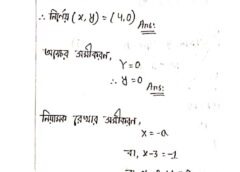 ∴ নির্ণেয় (x, y) = (4, 0) Ans:
অক্ষের সমীকরণ,
Y = 0
∴ y = 0 Ans:
নিয়ামক রেখার সমীকরণ,
X = -a
বা, x-3 = -1